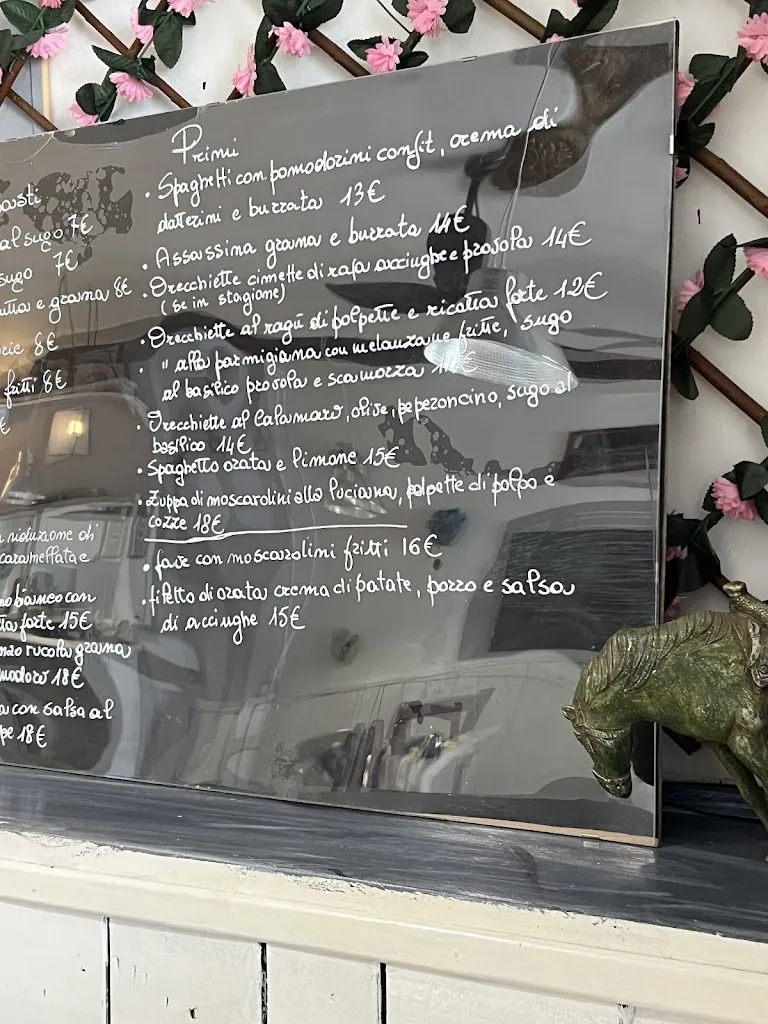 Primi
• Spaghetti con pomodorini confit, crema di
datterini e burrata 13€
• Assassina grana e burrata 14€
• Orecchiette cimette di rapa acciughe e provola 14€
(se in stagione)
• Orecchiette al ragù di polpette e ricotta forte 12€
• " alla parmigiana con melanzane fritte, sugo
al basilico provola e scamorza
• Orecchiette al calamaro, olive, peperoncino, sugo al
basilico 14€
• Spaghetto orata e limone 15€
• Zuppa di moscardini alla luciana, polpette di polpo e
cozze 18€
• fave con moscardini fritti 16€
• filetto di orata crema di patate, porro e salsa
di acciughe 15€
al sugo 7€
sugo 7€
e grana 8€
8€
fritti 8€
€
riduzione di
caramellata e
bianco con
forte 15€
rucola grana
18€
con salsa al
18€